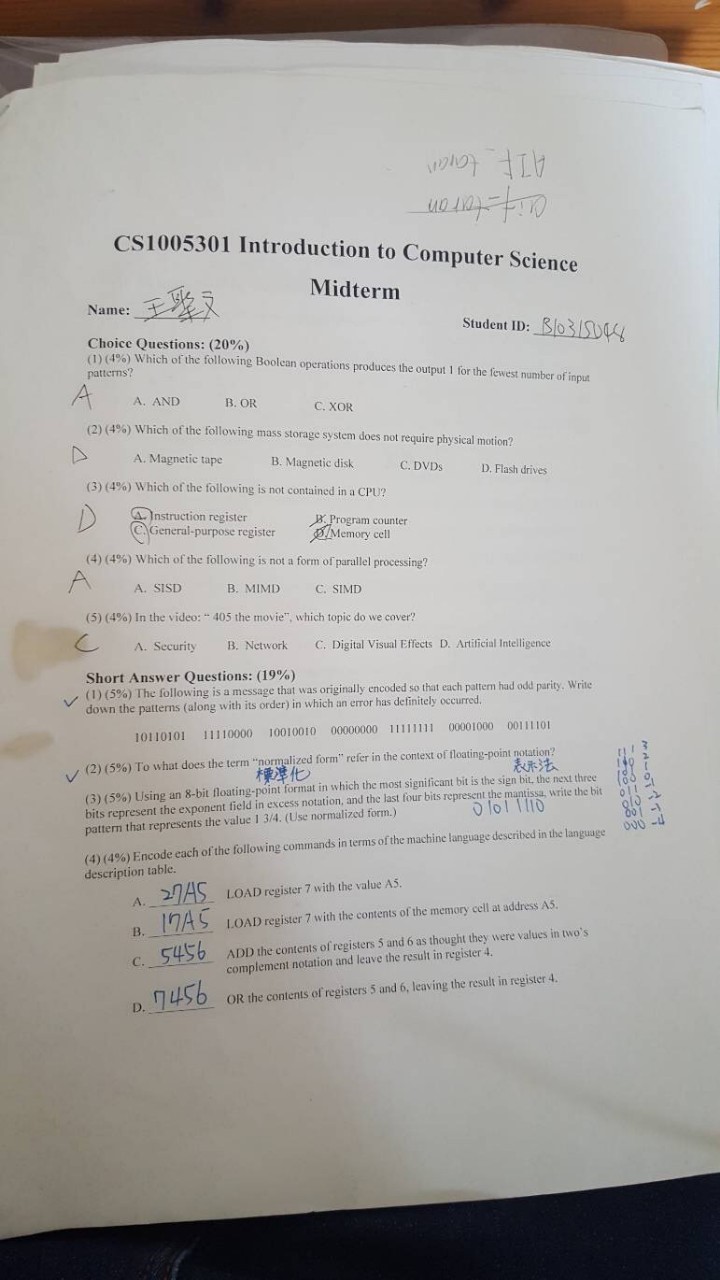 CS1005301 Introduction to Computer Science
Midterm
Name: 王聖文
Student ID: B10315048
Choice Questions: (20%)
(1) (4%) Which of the following Boolean operations produces the output 1 for the fewest number of input
patterns?
A
A. AND B. OR C. XOR
(2) (4%) Which of the following mass storage system does not require physical motion?
D
A. Magnetic tape B. Magnetic disk C. DVDs D. Flash drives
(3) (4%) Which of the following is not contained in a CPU?
D
A. Instruction register B. Program counter
C. General-purpose register D. Memory cell
(4) (4%) Which of the following is not a form of parallel processing?
A
A. SISD B. MIMD C. SIMD
(5) (4%) In the video: “ 405 the movie”, which topic do we cover?
C
A. Security B. Network C. Digital Visual Effects D. Artificial Intelligence
Short Answer Questions: (19%)
(1) (5%) The following is a message that was originally encoded so that each pattern had odd parity. Write
down the patterns (along with its order) in which an error has definitely occurred.
10110101 11110000 10010010 00000000 11111111 00001000 00111101
(2) (5%) To what does the term “normalized form” refer in the context of floating-point notation?
標準化 表示法
(3) (5%) Using an 8-bit floating-point format in which the most significant bit is the sign bit, the next three
bits represent the exponent field in excess notation, and the last four bits represent the mantissa, write the bit
pattern that represents the value 1 3/4. (Use normalized form.)
01011110
(4) (4%) Encode each of the following commands in terms of the machine language described in the language
description table.
A. 27A5 LOAD register 7 with the value A5.
B. 17A5 LOAD register 7 with the contents of the memory cell at address A5.
C. 5456 ADD the contents of registers 5 and 6 as thought they were values in two's
complement notation and leave the result in register 4.
D. 7456 OR the contents of registers 5 and 6, leaving the result in register 4.